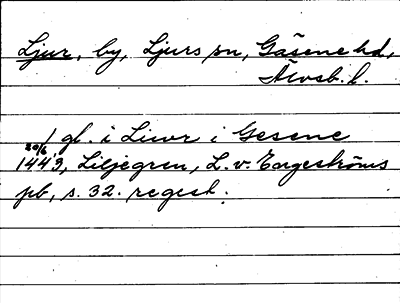 Ljur, by, Ljurs sn, Gäsene hd,
Älvsb. l.
1 gl. i Liwr i Gesene
20/6 1443, Liljegren, L. v. Engeströms
pb, s. 32. regest.